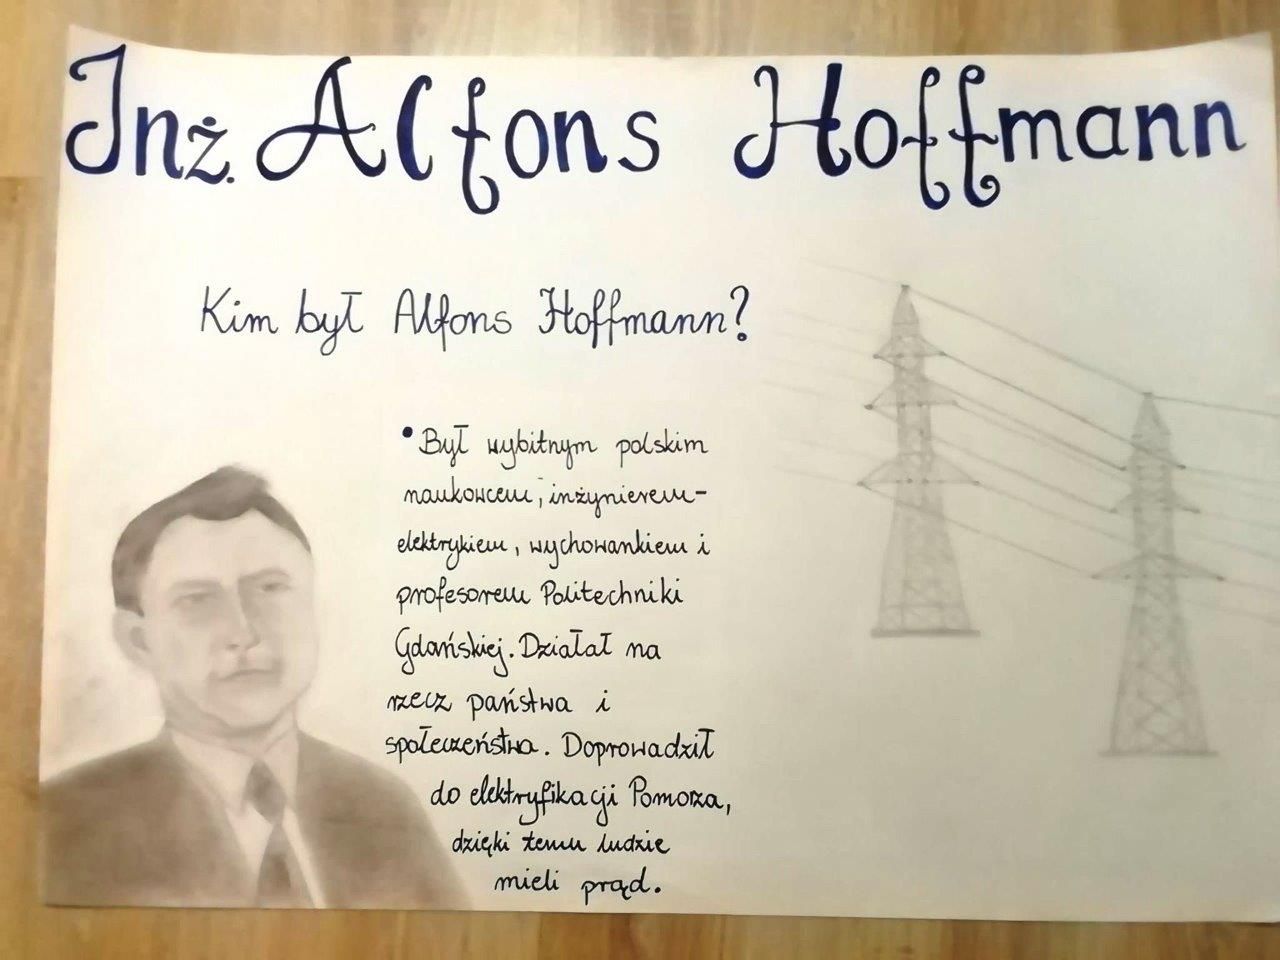 Inż. Alfons Hoffmann
Kim był Alfons Hoffmann?
• Był wybitnym polskim
naukowcem, inżynierem-
elektrykiem, wychowankiem i
profesorem Politechniki
Gdańskiej. Działał na
rzecz państwa i
społeczeństwa. Doprowadził
do elektryfikacji Pomorza,
dzięki temu ludzie
mieli prąd.